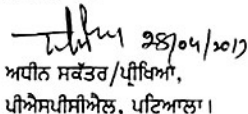 28/04/2017
ਅਧੀਨ ਸਕੱਤਰ/ਪ੍ਰੀਖਿਆ,
ਪੀਐਸਪੀਸੀਐਲ, ਪਟਿਆਲਾ।